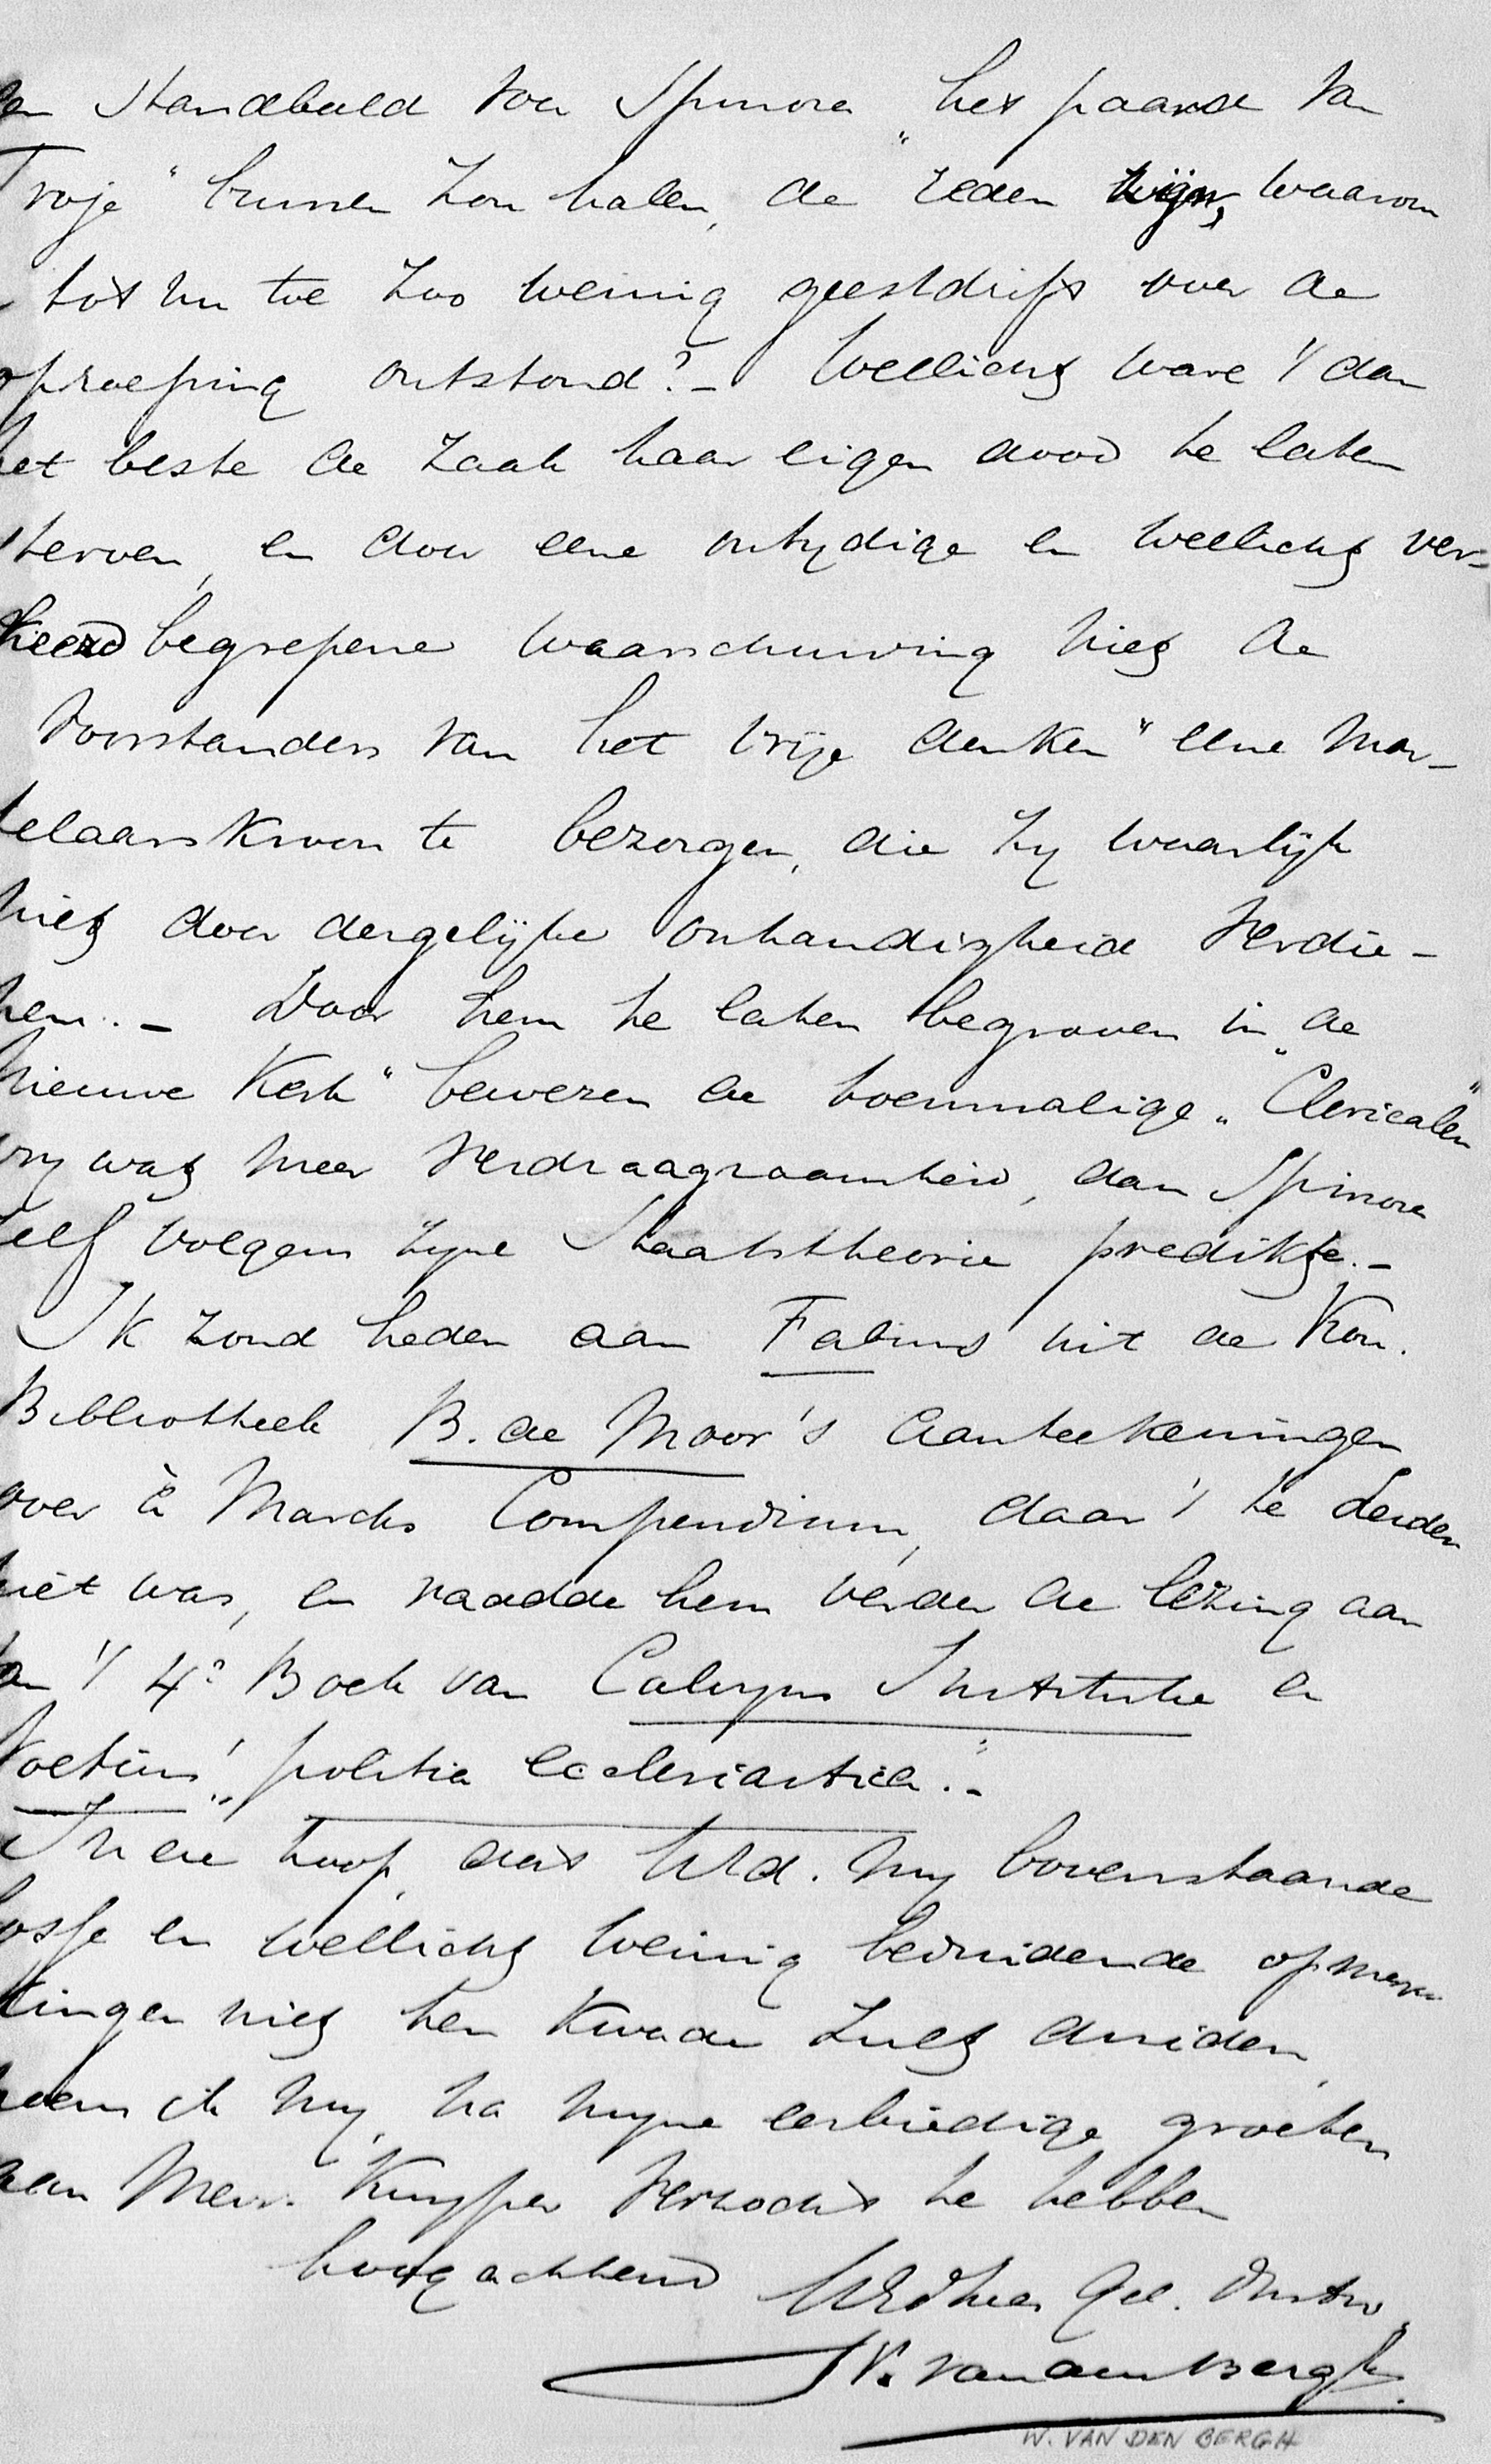 een standbeeld voor Spinoza „het paard van
Troje" binnen zou halen, de reden zijn, waarom
tot nu toe zoo weinig geestdrift voor de
oproeping ontstond? – Wellicht ware 't dan
het beste de zaak haar eigen dood te laten
sterven, en door eene ontydige en wellicht ver-
keerd begrepene waarschuwing niet de
voorstanders van het vrije denken" eene mar-
telaarskroon te bezorgen, die zy waarlijk
niet door dergelijke onhandigheid verdie-
nen. – Door hem te laten begraven in de
„Nieuwe Kerk" bewezen de toenmalige „Clericalen"
vry wat meer verdraagzaamheid, dan Spinoza
zelf volgens zyne Staatstheorie predikte. –
Ik zond heden aan Fabius uit de Kon.
Bibliotheek B. de Moor's aanteekeningen
over à Marcks Compendium, daar 't te Leiden
niet was, en raadde hem verder de lezing aan
van 't 4e Boek van Calvyns Institutie en
Voetius' „politia ecclesiastica". –
In de hoop, dat UEd. my bovenstaande
losse en wellicht weinig beduidende opmer-
kingen niet ten kwade zult duiden,
noem ik my, na myne eerbiedige groeten
aan Mevr. Kuyper verzocht te hebben
hoogachtend UEdHer Gel. Dnstw.
W. van den Bergh.
W. VAN DEN BERGH